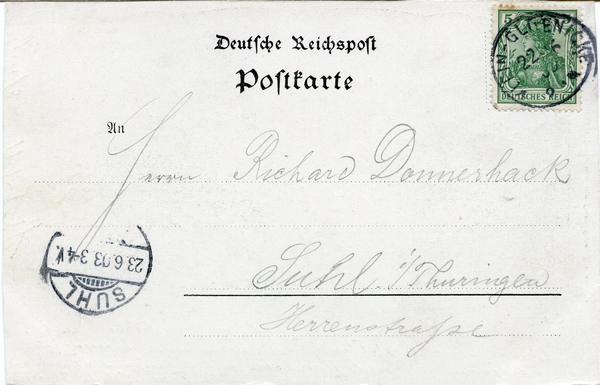 Deutsche Reichspost
Postkarte
An
Herrn Richard Donnerhack
Suhl i/Thüringen
Herrenstraße
5
DEUTSCHES REICH
KLEIN-GLIENICKE
22
SUHL
23.6.03.3-4V.